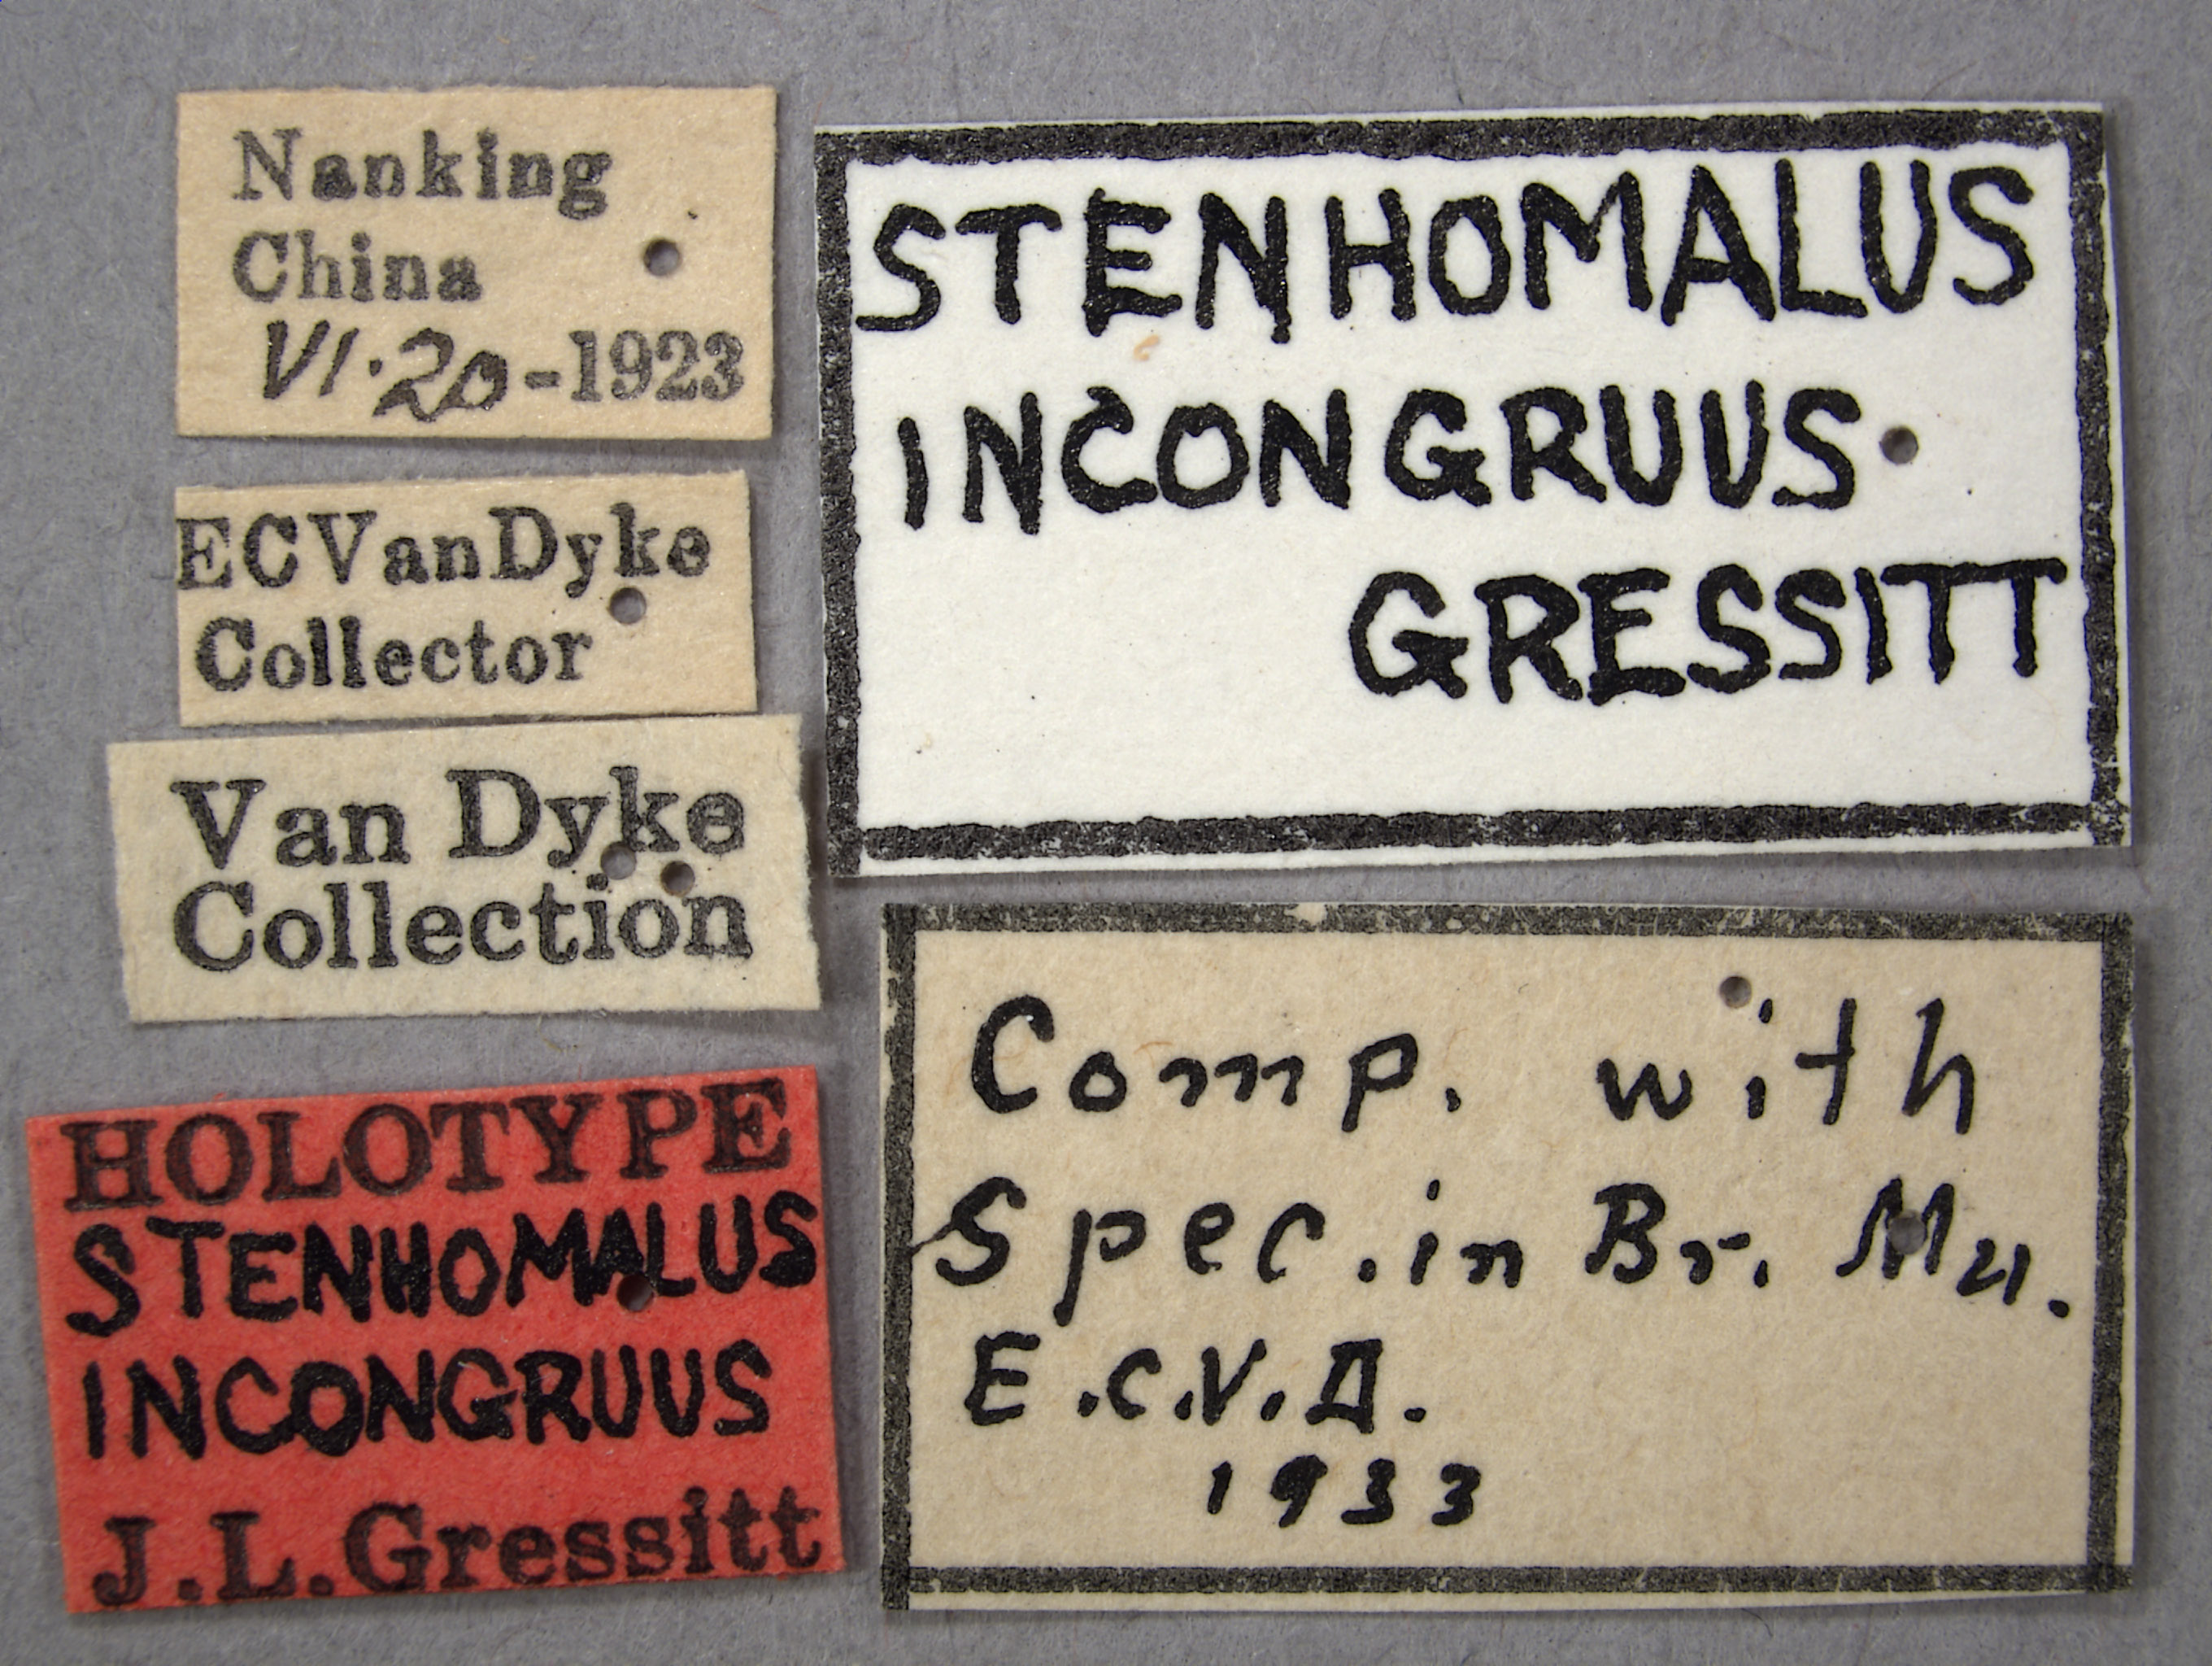 Nanking
China
VI·20-1923
ECVanDyke
Collector
Van Dyke
Collection
HOLOTYPE
STENHOMALUS
INCONGRUUS
J.L.Gressitt
STENHOMALUS
INCONGRUUS
GRESSITT
Comp. with
Spec. in Br. Mu.
E.C.V.D.
1933